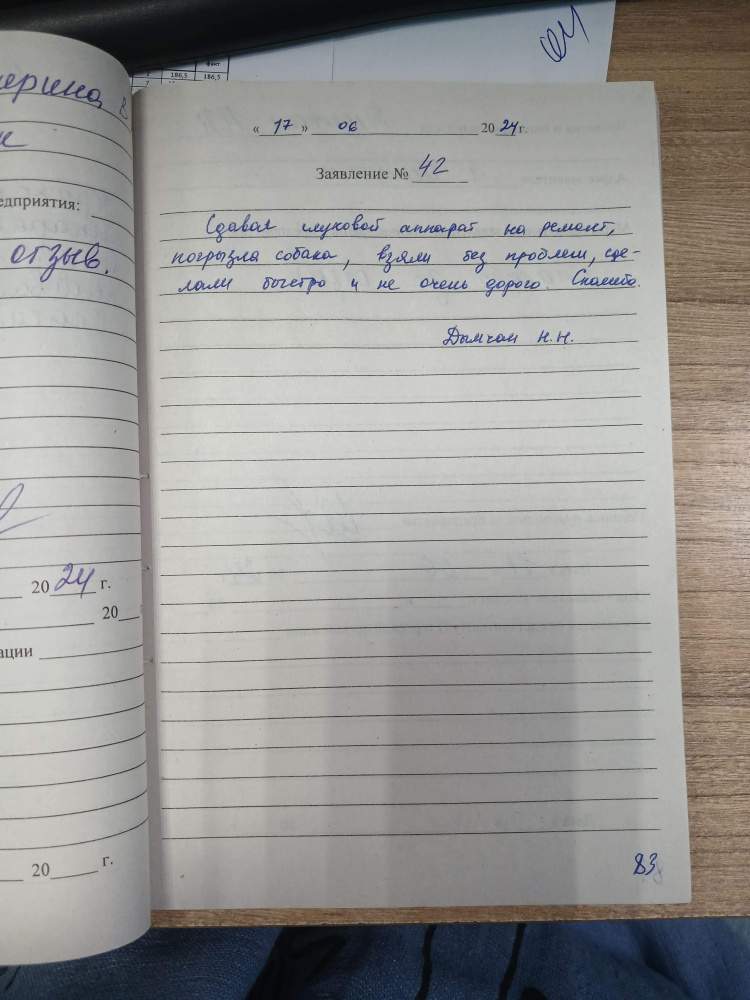 факт
186,5 186,5
ерина в
едприятия:
отзыв.
2024 г.
20
ации
20 г.
«17» 06 2024г.
Заявление № 42
Сдавал слуховой аппарат на ремонт,
погрызла собака, взяли без проблем, сде-
лали быстро и не очень дорого. Спасибо.
Н.Н.
83